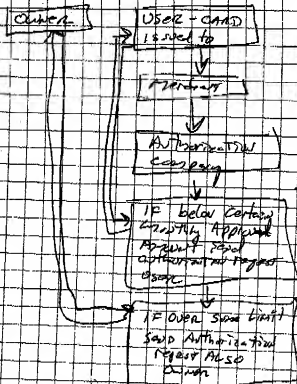 Owner
USER - CARD
issued to
Merchant
Authorization
Company
IF below certain
Monthly Approved
Amount send
authorization request
user
IF OVER Some Limit
Send Authorization
request ALSO
Owner